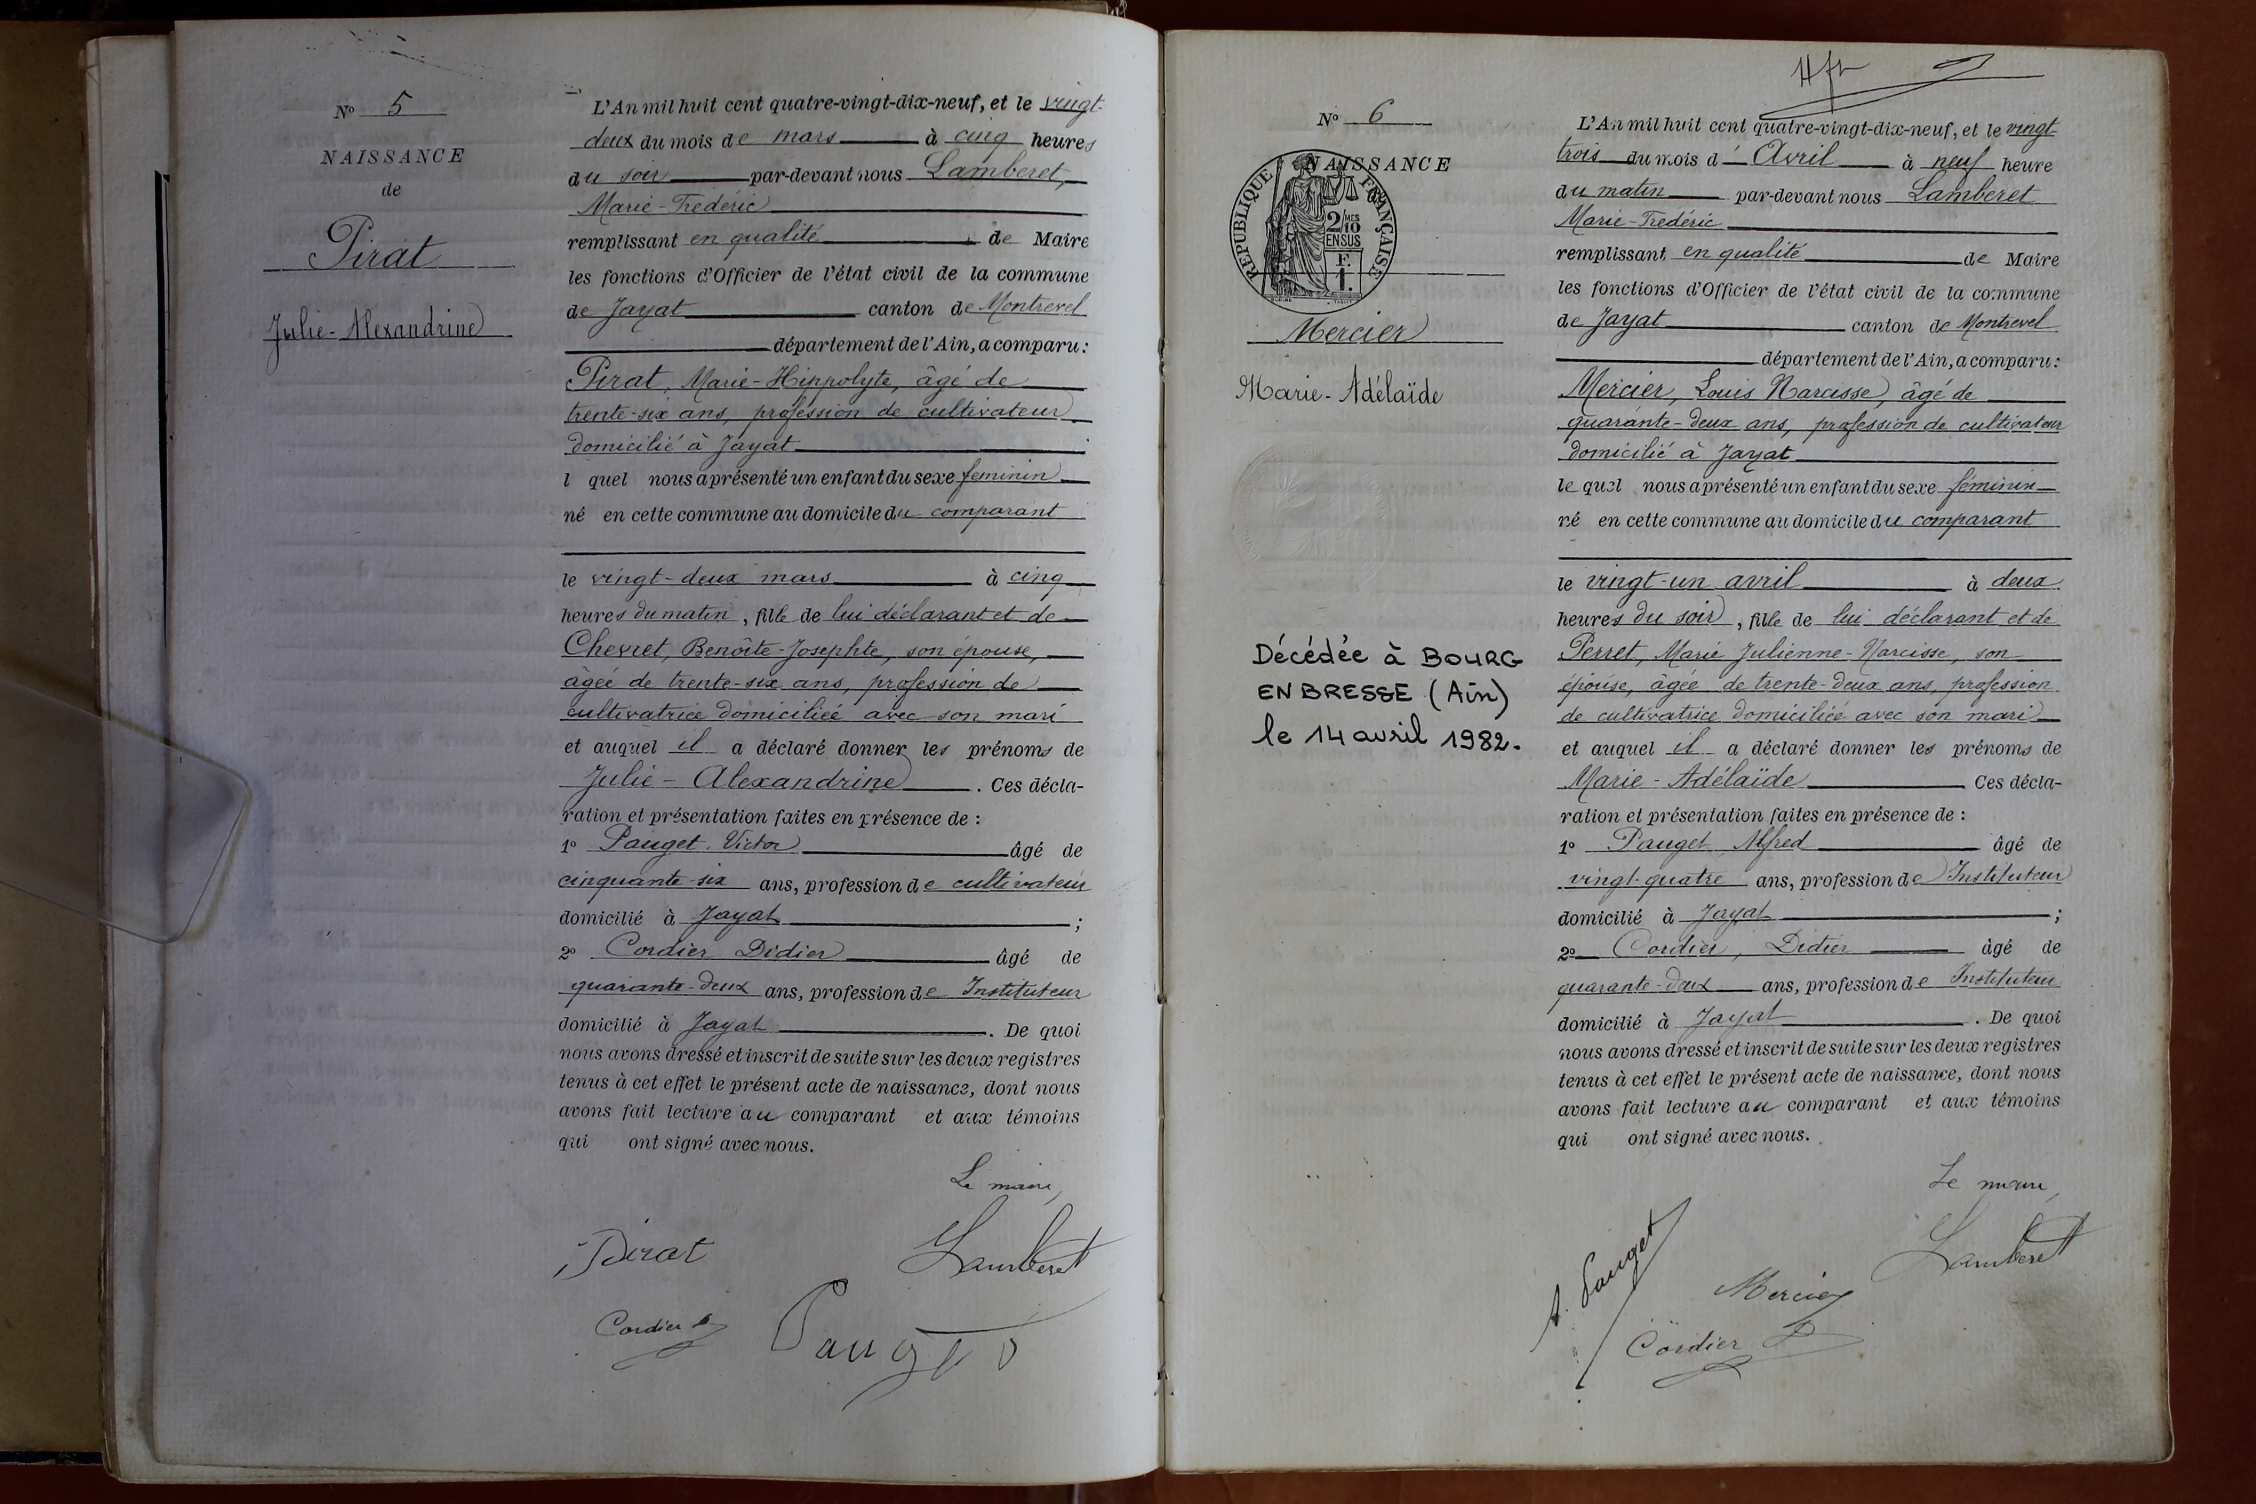 N° 5
NAISSANCE
de
Pirat
Julie-Alexandrine
L'An mil huit cent quatre-vingt-dix-neuf, et le vingt-
deux du mois de mars à cinq heures
du soir par-devant nous Lamberet,
Marie-Frédéric
remplissant en qualité de Maire
les fonctions d'Officier de l'état civil de la commune
de Jayat canton de Montrevel
département de l'Ain, a comparu :
Pirat, Marie-Hippolyte, âgé de
trente-six ans, profession de cultivateur
domicilié à Jayat
l quel nous a présenté un enfant du sexe féminin
né en cette commune au domicile du comparant
le vingt-deux mars à cinq
heures du matin, fille de lui déclarant et de
Chevret, Benoîte-Josephte, son épouse,
âgée de trente-six ans, profession de
cultivatrice domiciliée avec son mari
et auquel il a déclaré donner les prénoms de
Julie-Alexandrine. Ces décla-
ration et présentation faites en présence de :
1° Pauget, Victor âgé de
cinquante-six ans, profession de cultivateur
domicilié à Jayat ;
2° Cordier Didier âgé de
quarante-deux ans, profession de Instituteur
domicilié à Jayat. De quoi
nous avons dressé et inscrit de suite sur les deux registres
tenus à cet effet le présent acte de naissance, dont nous
avons fait lecture au comparant et aux témoins
qui ont signé avec nous.
Le maire,
Pirat Lamberet
Cordier D Pauget
N° 6
NAISSANCE
REPUBLIQUE FRANÇAISE
2/10 MES
EN SUS
F.
1.
Mercier
Marie-Adélaïde
Décédée à BOURG
EN BRESSE (Ain)
le 14 avril 1982.
L'An mil huit cent quatre-vingt-dix-neuf, et le vingt-
trois du mois d'Avril à neuf heure
du matin par-devant nous Lamberet
Marie-Frédéric
remplissant en qualité de Maire
les fonctions d'Officier de l'état civil de la commune
de Jayat canton de Montrevel
département de l'Ain, a comparu :
Mercier, Louis Narcisse, âgé de
quarante-deux ans, profession de cultivateur
domicilié à Jayat
le quel nous a présenté un enfant du sexe féminin
né en cette commune au domicile du comparant
le vingt-un avril à deux
heures du soir, fille de lui déclarant et de
Perret, Marie Julienne-Narcisse, son
épouse, âgée de trente-deux ans, profession
de cultivatrice domiciliée avec son mari
et auquel il a déclaré donner les prénoms de
Marie-Adélaïde Ces décla-
ration et présentation faites en présence de :
1° Pauget, Alfred âgé de
vingt-quatre ans, profession de Instituteur
domicilié à Jayat ;
2° Cordier, Didier âgé de
quarante-deux ans, profession de Instituteur
domicilié à Jayat. De quoi
nous avons dressé et inscrit de suite sur les deux registres
tenus à cet effet le présent acte de naissance, dont nous
avons fait lecture au comparant et aux témoins
qui ont signé avec nous.
Le maire,
A. Pauget Lamberet
Mercier
Cordier D